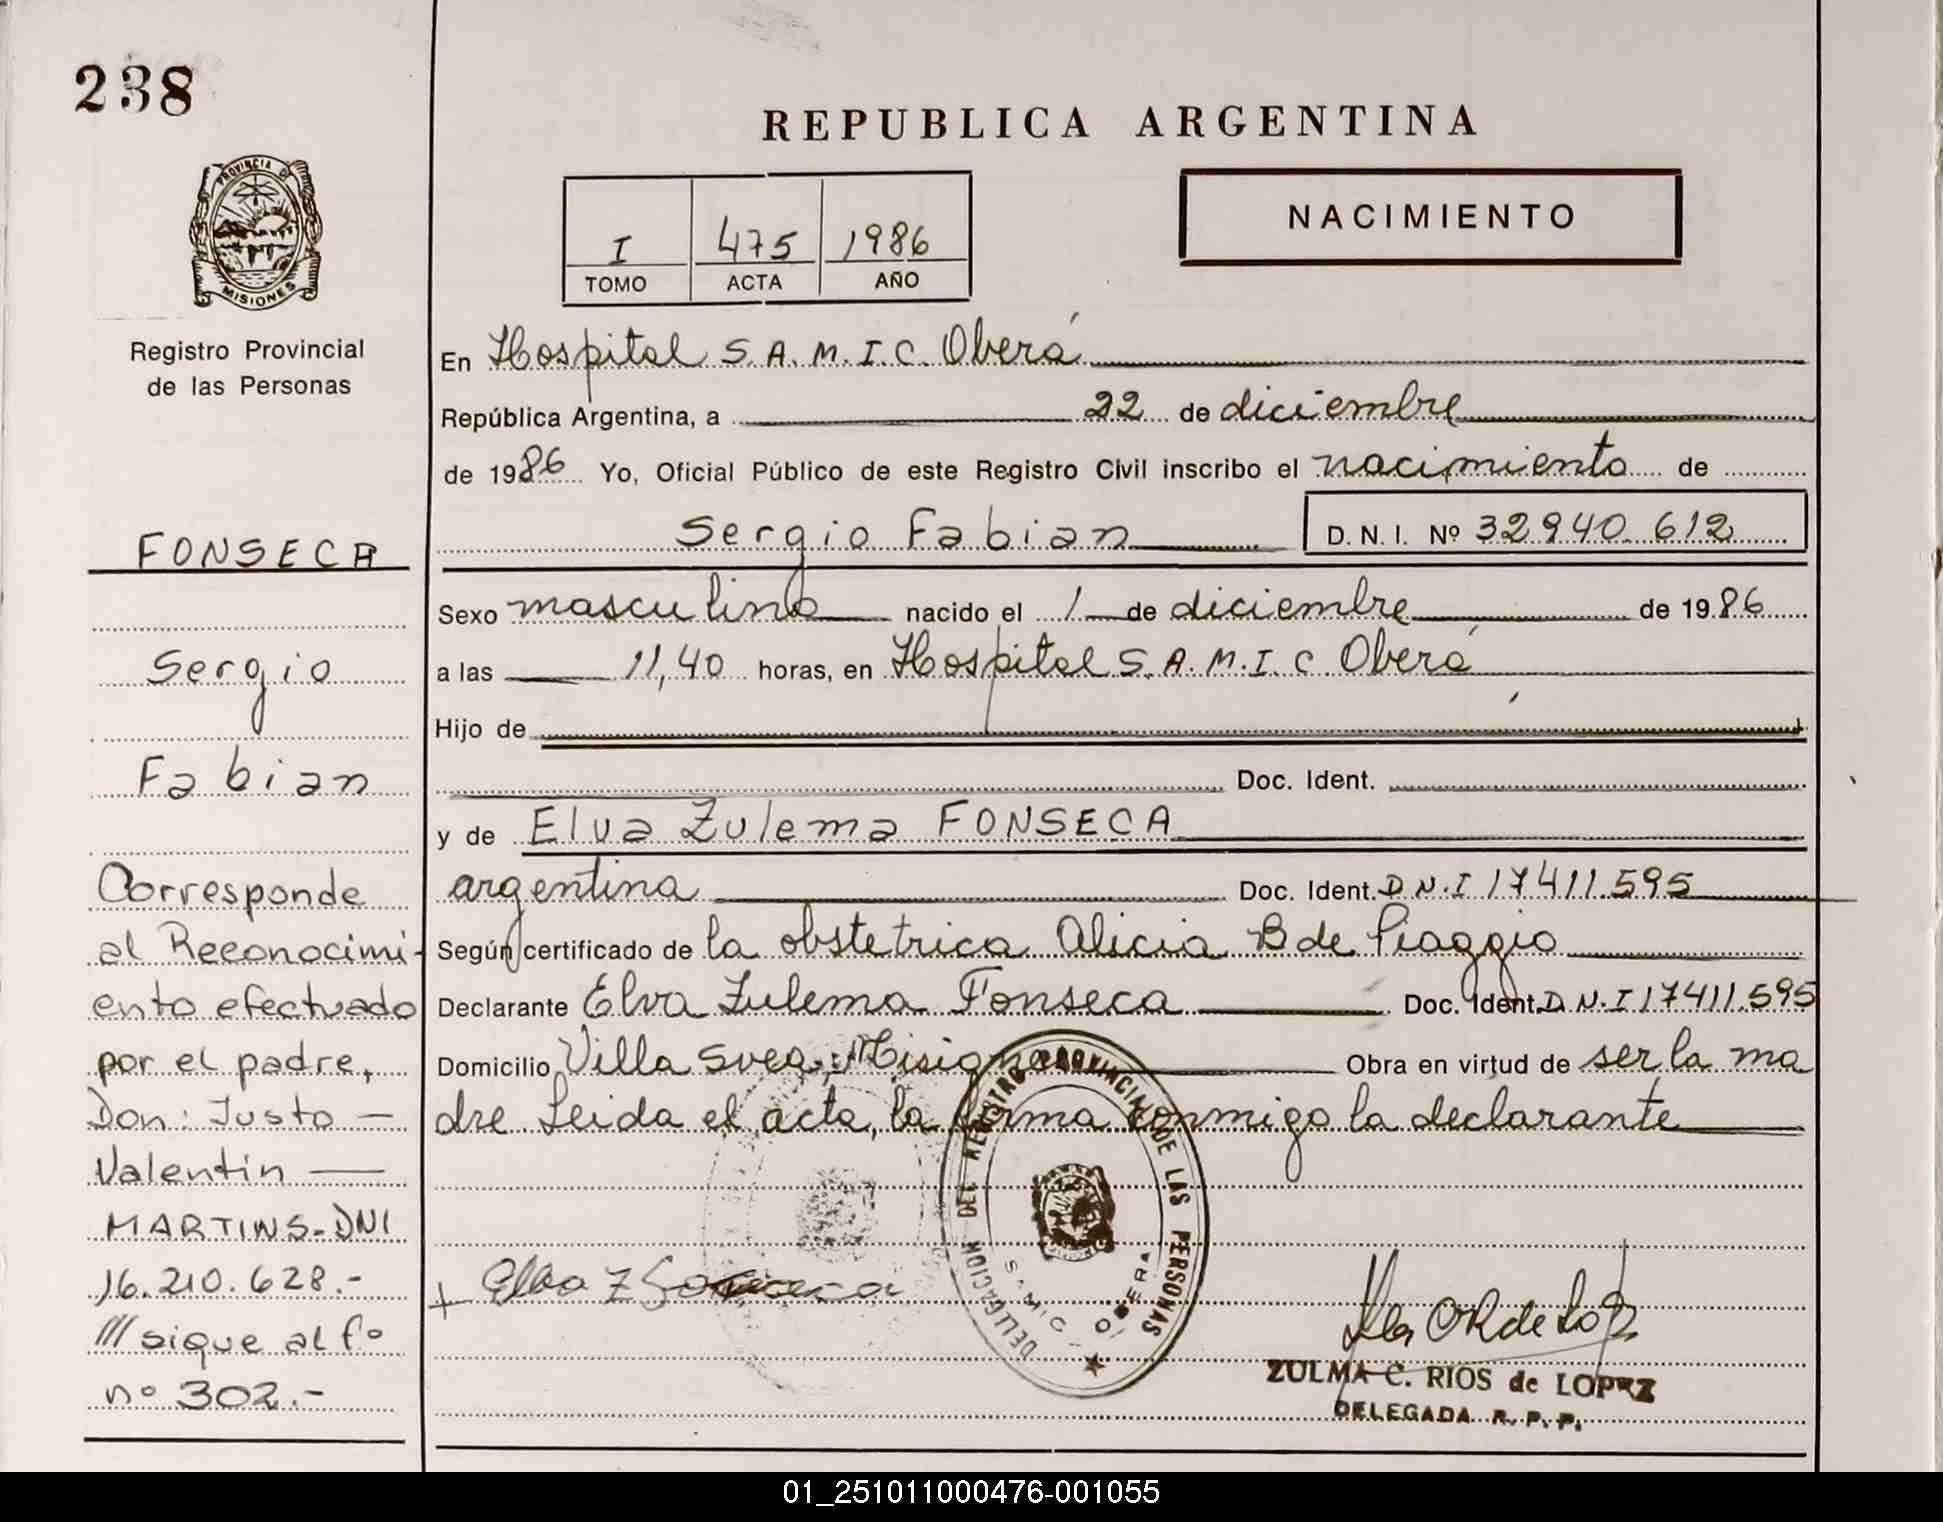 238
REPUBLICA ARGENTINA
PROVINCIA DE
MISIONES
Registro Provincial
de las Personas
I 475 1986
TOMO ACTA AÑO
NACIMIENTO
En Hospital S.A.M.I.C. Oberá
República Argentina, a 22 de diciembre
de 1986 Yo, Oficial Público de este Registro Civil inscribo el nacimiento de
Sergio Fabian D.N.I. Nº 32940.612
Sexo masculino nacido el 1 de diciembre de 1986
a las 11,40 horas, en Hospital S.A.M.I.C. Oberá
Hijo de
Doc. Ident.
y de Elva Zulema FONSECA
argentina Doc. Ident. D.N.I 17411.595
Según certificado de la obstetrica Alicia B de Piaggio
Declarante Elva Zulema Fonseca Doc. Ident. D.N.I 17411.595
Domicilio Villa Svea, Misiones Obra en virtud de ser la ma
dre Leida el acta, la firma conmigo la declarante
FONSECA
Sergio
Fabian
Corresponde
al Reconocimi-
ento efectuado
por el padre,
Don: Justo —
Valentin —
MARTINS-DNI
16.210.628.-
/// sique al fº
nº 302.-
DELEGACION DEL REGISTRO PROVINCIAL DE LAS PERSONAS
S.A.M.I.C. - OBERA
+ Elba Z Fonseca
ZULMA C. RIOS de LOPEZ
DELEGADA R. P. P.
01_251011000476-001055